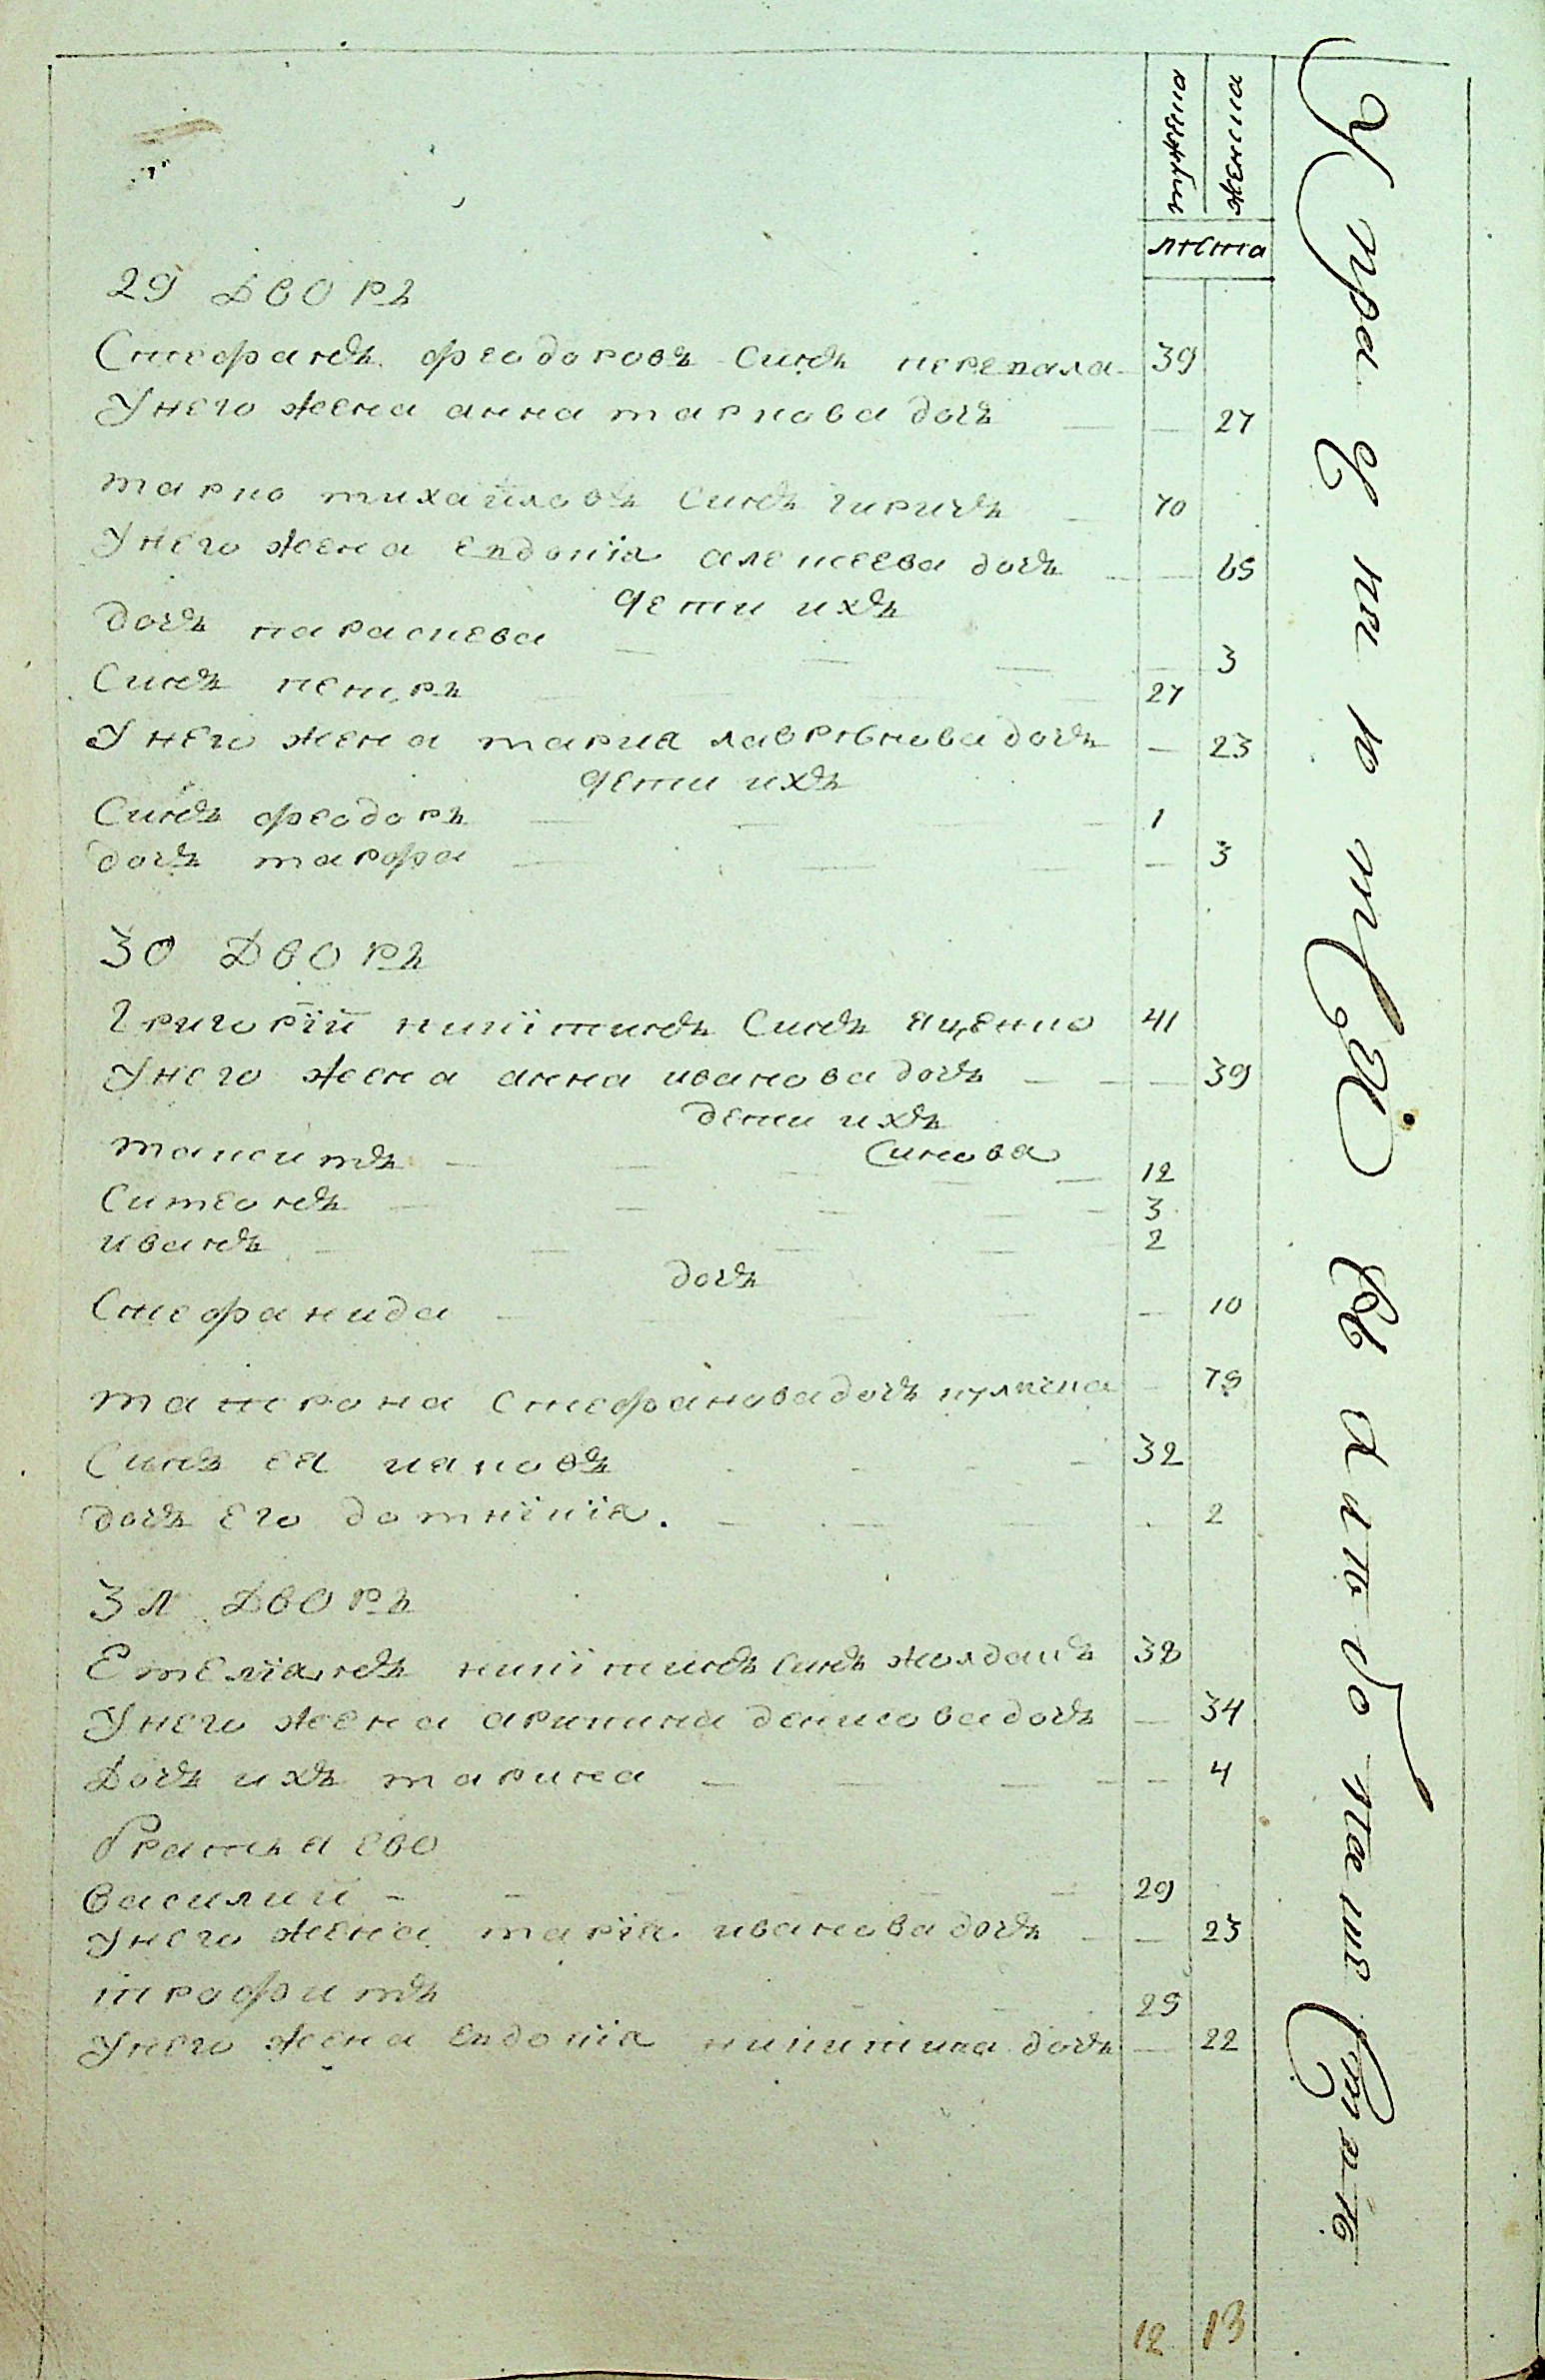 мужеска
женска
лѣта
29 ДВОРЪ
Стефанъ феодоровъ синъ перепала 39
Унего жена анна маркова дочъ — — 27
марко михайловъ синъ чиричъ — 70
Унего жена евдокія алексеева дочъ — — 65
дети ихъ
дочъ параскева — — — — 3
Синъ петръ — 27
Унего жена мария лаврѣнова дочъ — 23
дети ихъ
Синъ феодоръ — — — 1
дочъ марфа — — — — 3
30 ДВОРЪ
Григорїй никїтинъ синъ яценко 41
Унего жена анна иванова дочъ — — — 39
дети ихъ
Синова
максимъ — — — — — 12
Симеонъ — — — — — 3
иванъ — — — — 2
дочъ
Стефанида — — — — 10
матрона стефанова дочъ — 79
Синъ ея яковъ — 32
дочъ его домнїкїа. — — — 2
31 ДВОРЪ
Емеліанъ никїтинъ синъ жолдакъ 38
Унего жена арипина денисова дочъ — 34
Дочъ ихъ марина — — — — — 4
братья ево
Василий — — — — — — 29
Унего жена марїя иванова дочъ — — 23
трофимъ — 25
Унего жена евдокїа никитина дочъ — 22
12 13